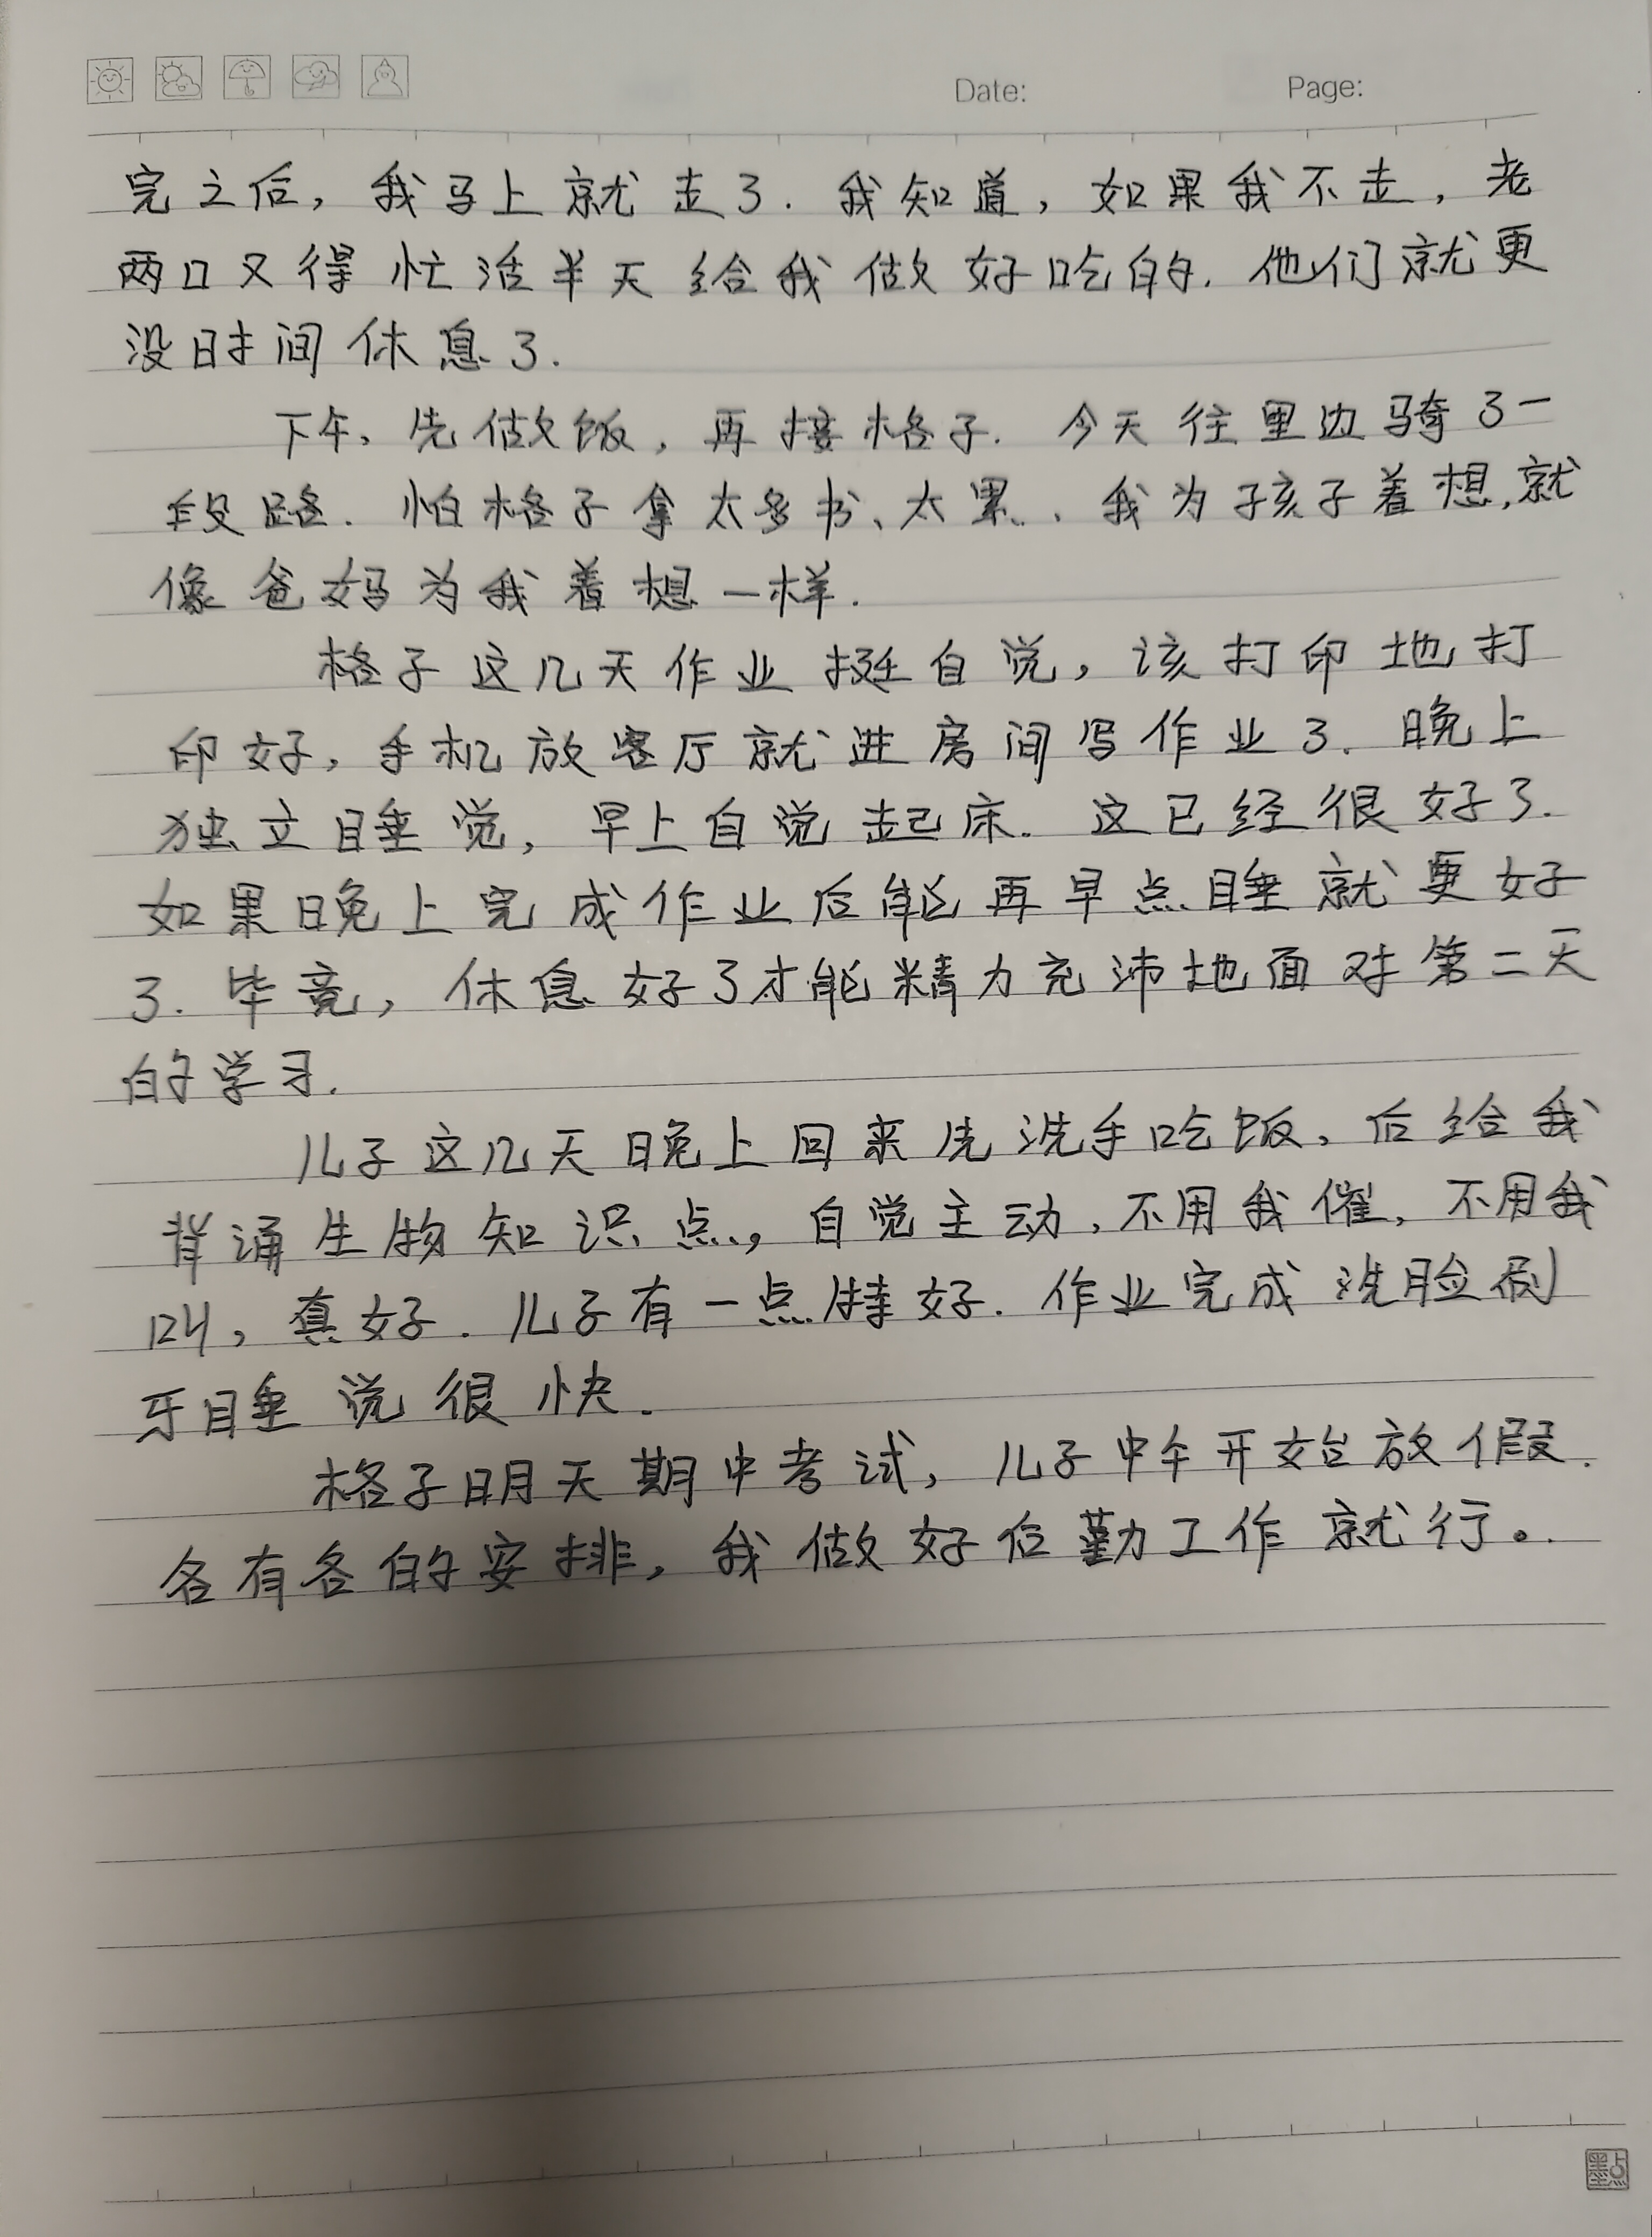 Date: Page:
完之后，我马上就走了.我知道，如果我不走，老
两口又得忙活半天给我做好吃的.他们就更
没时间休息了.
下午、先做饭，再接格子.今天往里边骑了一
段路.怕格子拿太多书、太累、我为孩子着想,就
像爸妈为我着想一样.
格子这几天作业挺自觉，该打印地打
印好，手机放客厅就进房间写作业了.晚上
独立睡觉，早上自觉起床.这已经很好了.
如果晚上完成作业后能再早点睡就更好
了.毕竟，休息好了才能精力充沛地面对第二天
的学习.
儿子这几天晚上回来先洗手吃饭、后给我
背诵生物知识点，自觉主动、不用我催，不用我
叫，真好.儿子有一点特好.作业完成洗脸刷
牙睡觉很快.
格子明天期中考试，儿子中午开始放假.
各有各的安排，我做好后勤工作就行。
墨点